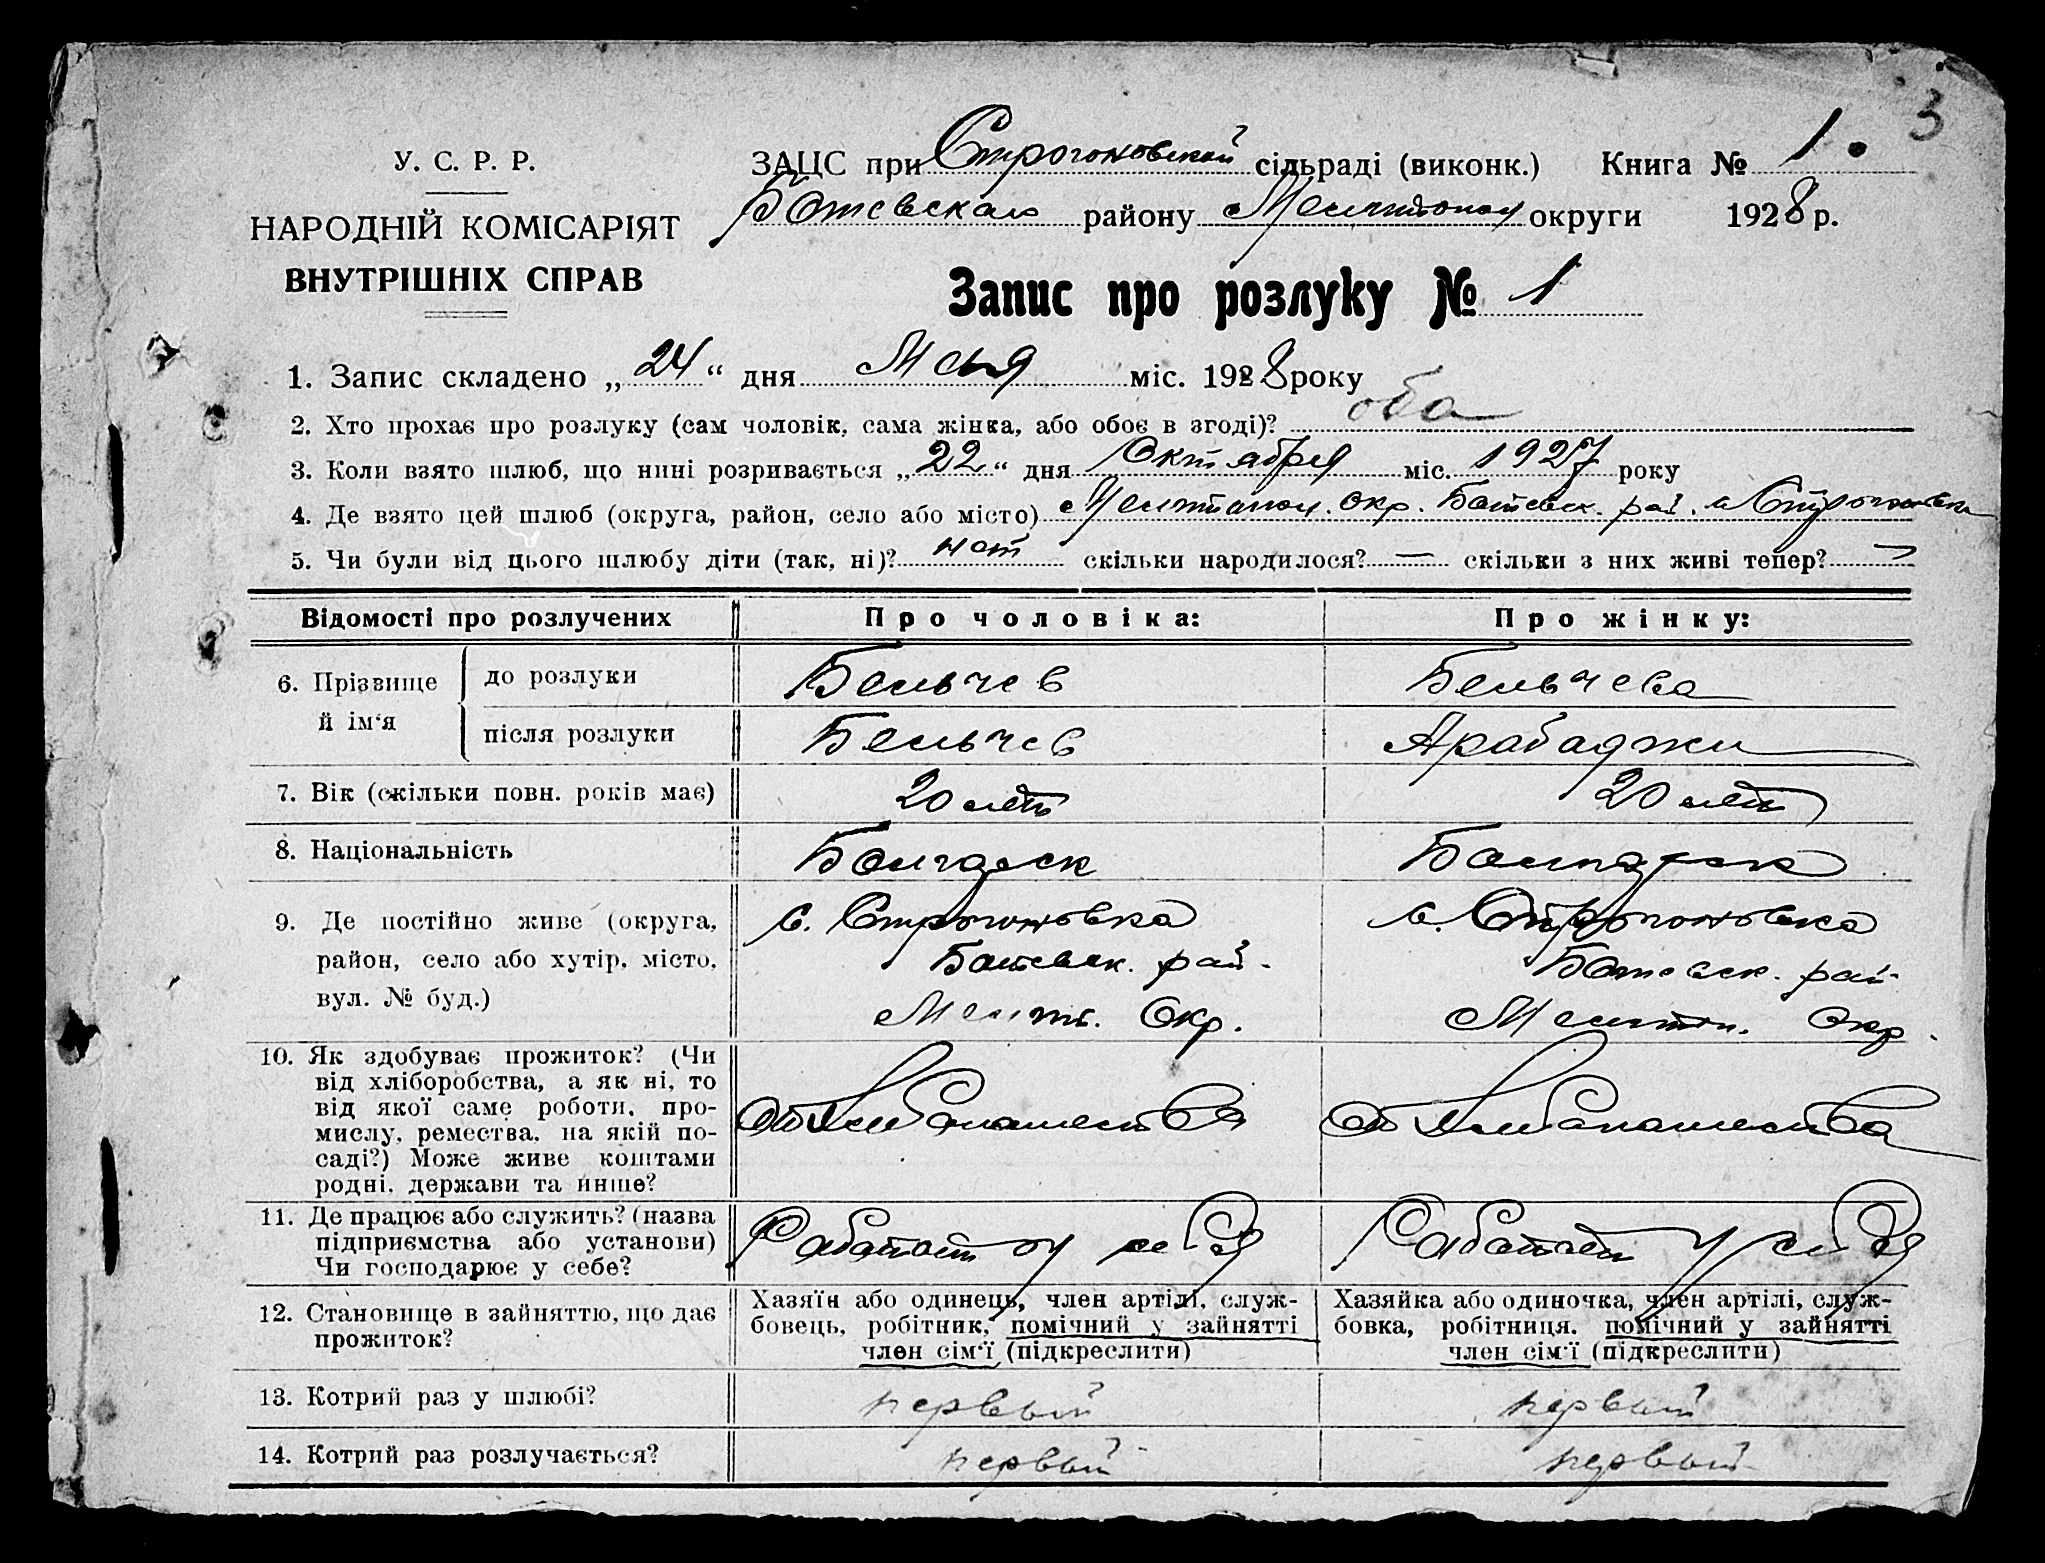 3
У. С. Р. Р.
НАРОДНІЙ КОМІСАРІЯТ
ВНУТРІШНІХ СПРАВ
ЗАЦС при Строгоновской сільраді (виконк.) Книга № 1.
Ботевскаго району Мелитопол округи 1928 р.
Запис про розлуку № 1
1. Запис складено „24“ дня Мая міс. 1928 року
2. Хто прохає про розлуку (сам чоловік, сама жінка, або обоє в згоді)? оба
3. Коли взято шлюб, що нині розривається „22“ дня Октября міс. 1927 року
4. Де взято цей шлюб (округа, район, село або місто) Мелитопол. окр. Ботевск. рай. с Строгоновка
5. Чи були від цього шлюбу діти (так, ні)? нет скільки народилося? — скільки з них живі тепер? —
Відомості про розлучених Про чоловіка: Про жінку:
6. Прізвище й ім'я до розлуки Бельчев Бельчева
після розлуки Бельчев Арабаджи
7. Вік (скільки повн. років має) 20 лет 20 лет
8. Національність Болгарск Болгарска
9. Де постійно живе (округа, район, село або хутір, місто, вул. № буд.)
с. Строгоновка с. Строгоновка
Ботевск. рай. Ботевск. рай.
Мелит. Окр. Мелитоп. Окр.
10. Як здобуває прожиток? (Чи
від хліборобства, а як ні, то
від якої саме роботи, про-
мислу, ремества, на якій по-
саді?) Може живе коштами
родні, держави та инше?
от хлебопашества от хлебопашества
11. Де працює або служить? (назва
підприємства або установи)
Чи господарює у себе?
Работает у себя Работает у себя
12. Становище в зайняттю, що дає
прожиток?
Хазяїн або одинець, член артілі, служ-
бовець, робітник, помічний у зайнятті
член сім'ї (підкреслити)
Хазяйка або одиночка, член артілі, служ-
бовка, робітниця, помічний у зайнятті
член сім'ї (підкреслити)
13. Котрий раз у шлюбі? первый первый
14. Котрий раз розлучається? первый первый